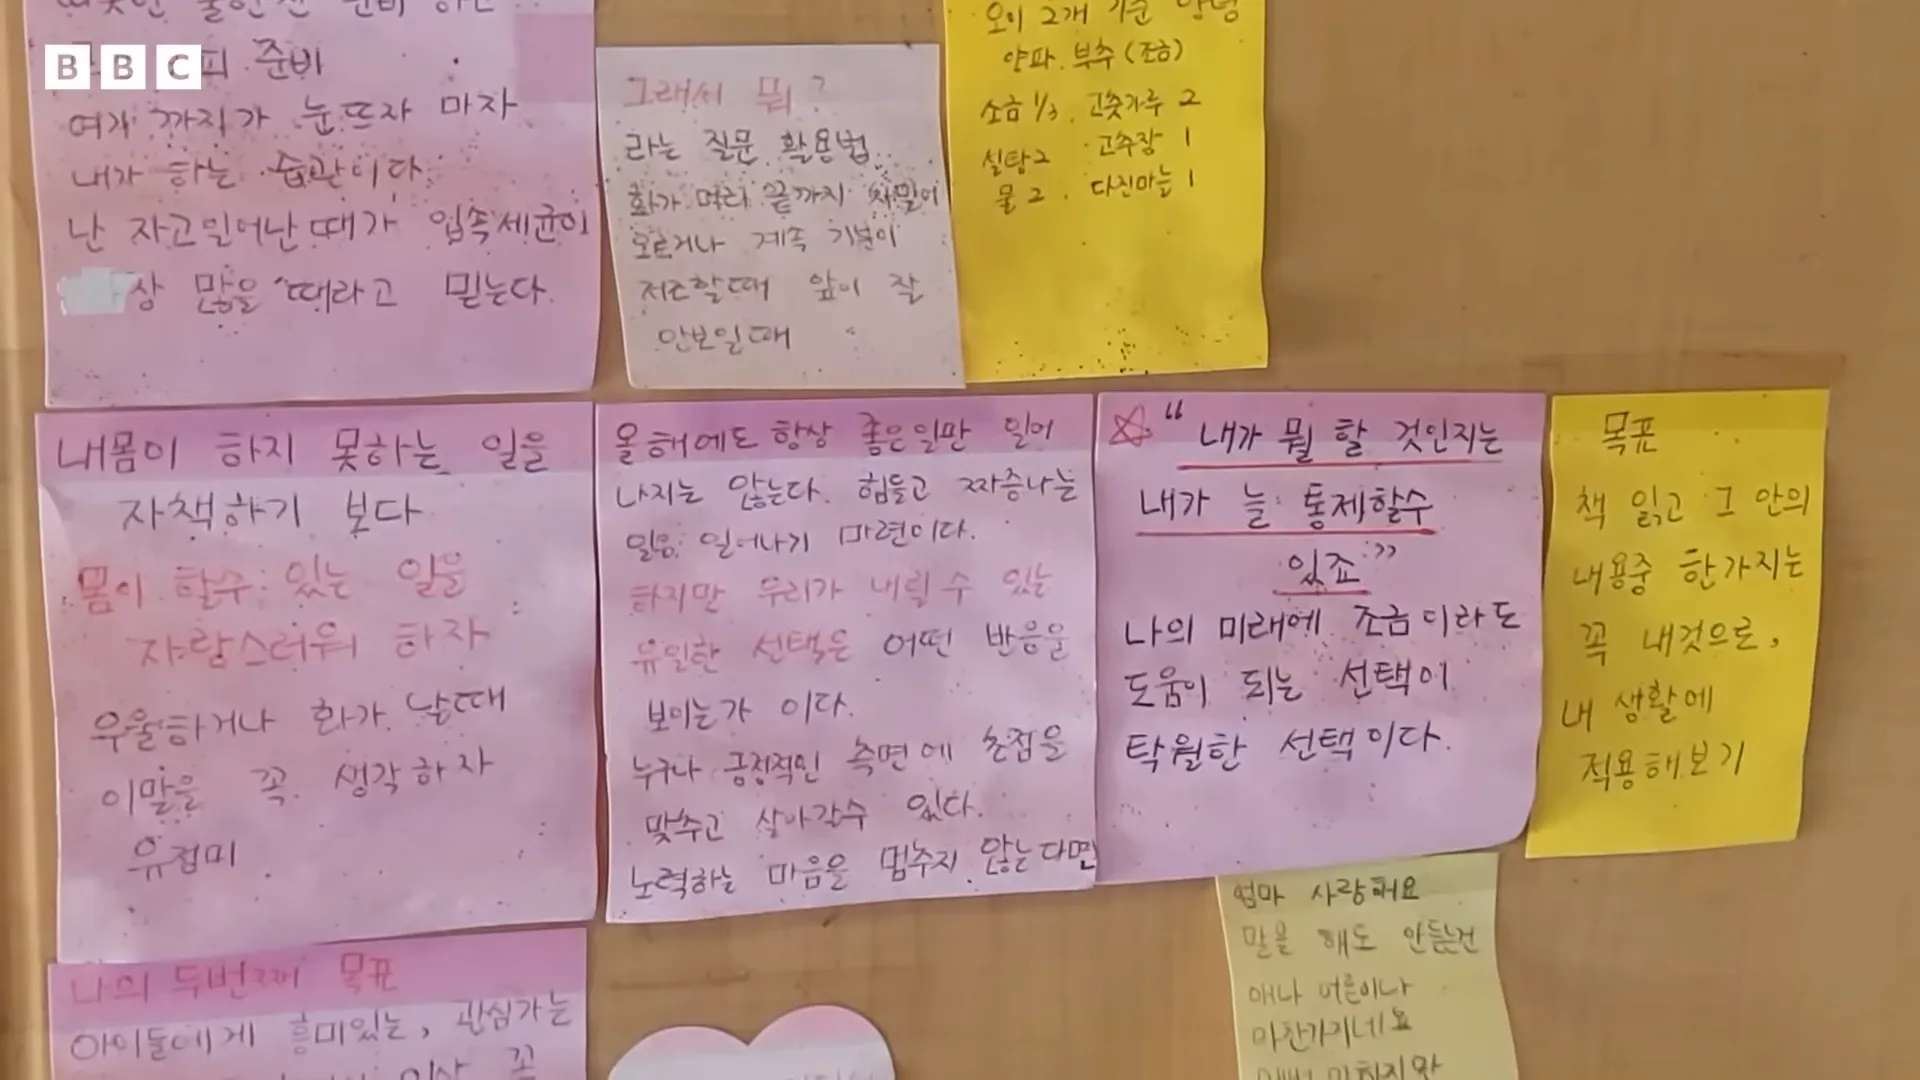 BBC
준비
여기 까지가 눈뜨자 마자
내가 하는 습관이다
난 자고일어난때가 입속세균이
상 많을 때라고 믿는다.
그래서 뭐?
라는 질문 활용법
화가 머리 끝까지
오르거나 계속 기분이
저조할때 앞이 잘
안보일때
오이 2개 기준 양념
양파. 부추 (조금)
소금 1/3. 고춧가루 2
설탕2 고추장 1
물 2. 다진마늘 1
내몸이 하지 못하는 일을
자책하기 보다
몸이 할수 있는 일을
자랑스러워 하자
우울하거나 화가 날때
이말을 꼭 생각하자
유점미
올해에도 항상 좋은일만 일어
나지는 않는다. 힘들고 짜증나는
일은 일어나기 마련이다.
하지만 우리가 내릴 수 있는
유일한 선택은 어떤 반응을
보이는가 이다.
누구나 긍정적인 측면에 초점을
맞추고 살아갈수 있다.
노력하는 마음을 멈추지 않는다면
" 내가 뭘 할 것인지는
내가 늘 통제할수
있죠"
나의 미래에 조금이라도
도움이 되는 선택이
탁월한 선택이다.
목표
책 읽고 그 안의
내용중 한가지는
꼭 내것으로,
내 생활에
적용해보기
나의 두번째 목표
아이들에게 흥미있는, 관심가는
이상 꼭
엄마 사랑해요
말을 해도 안듣는건
애나 어른이나
마찬가지네요